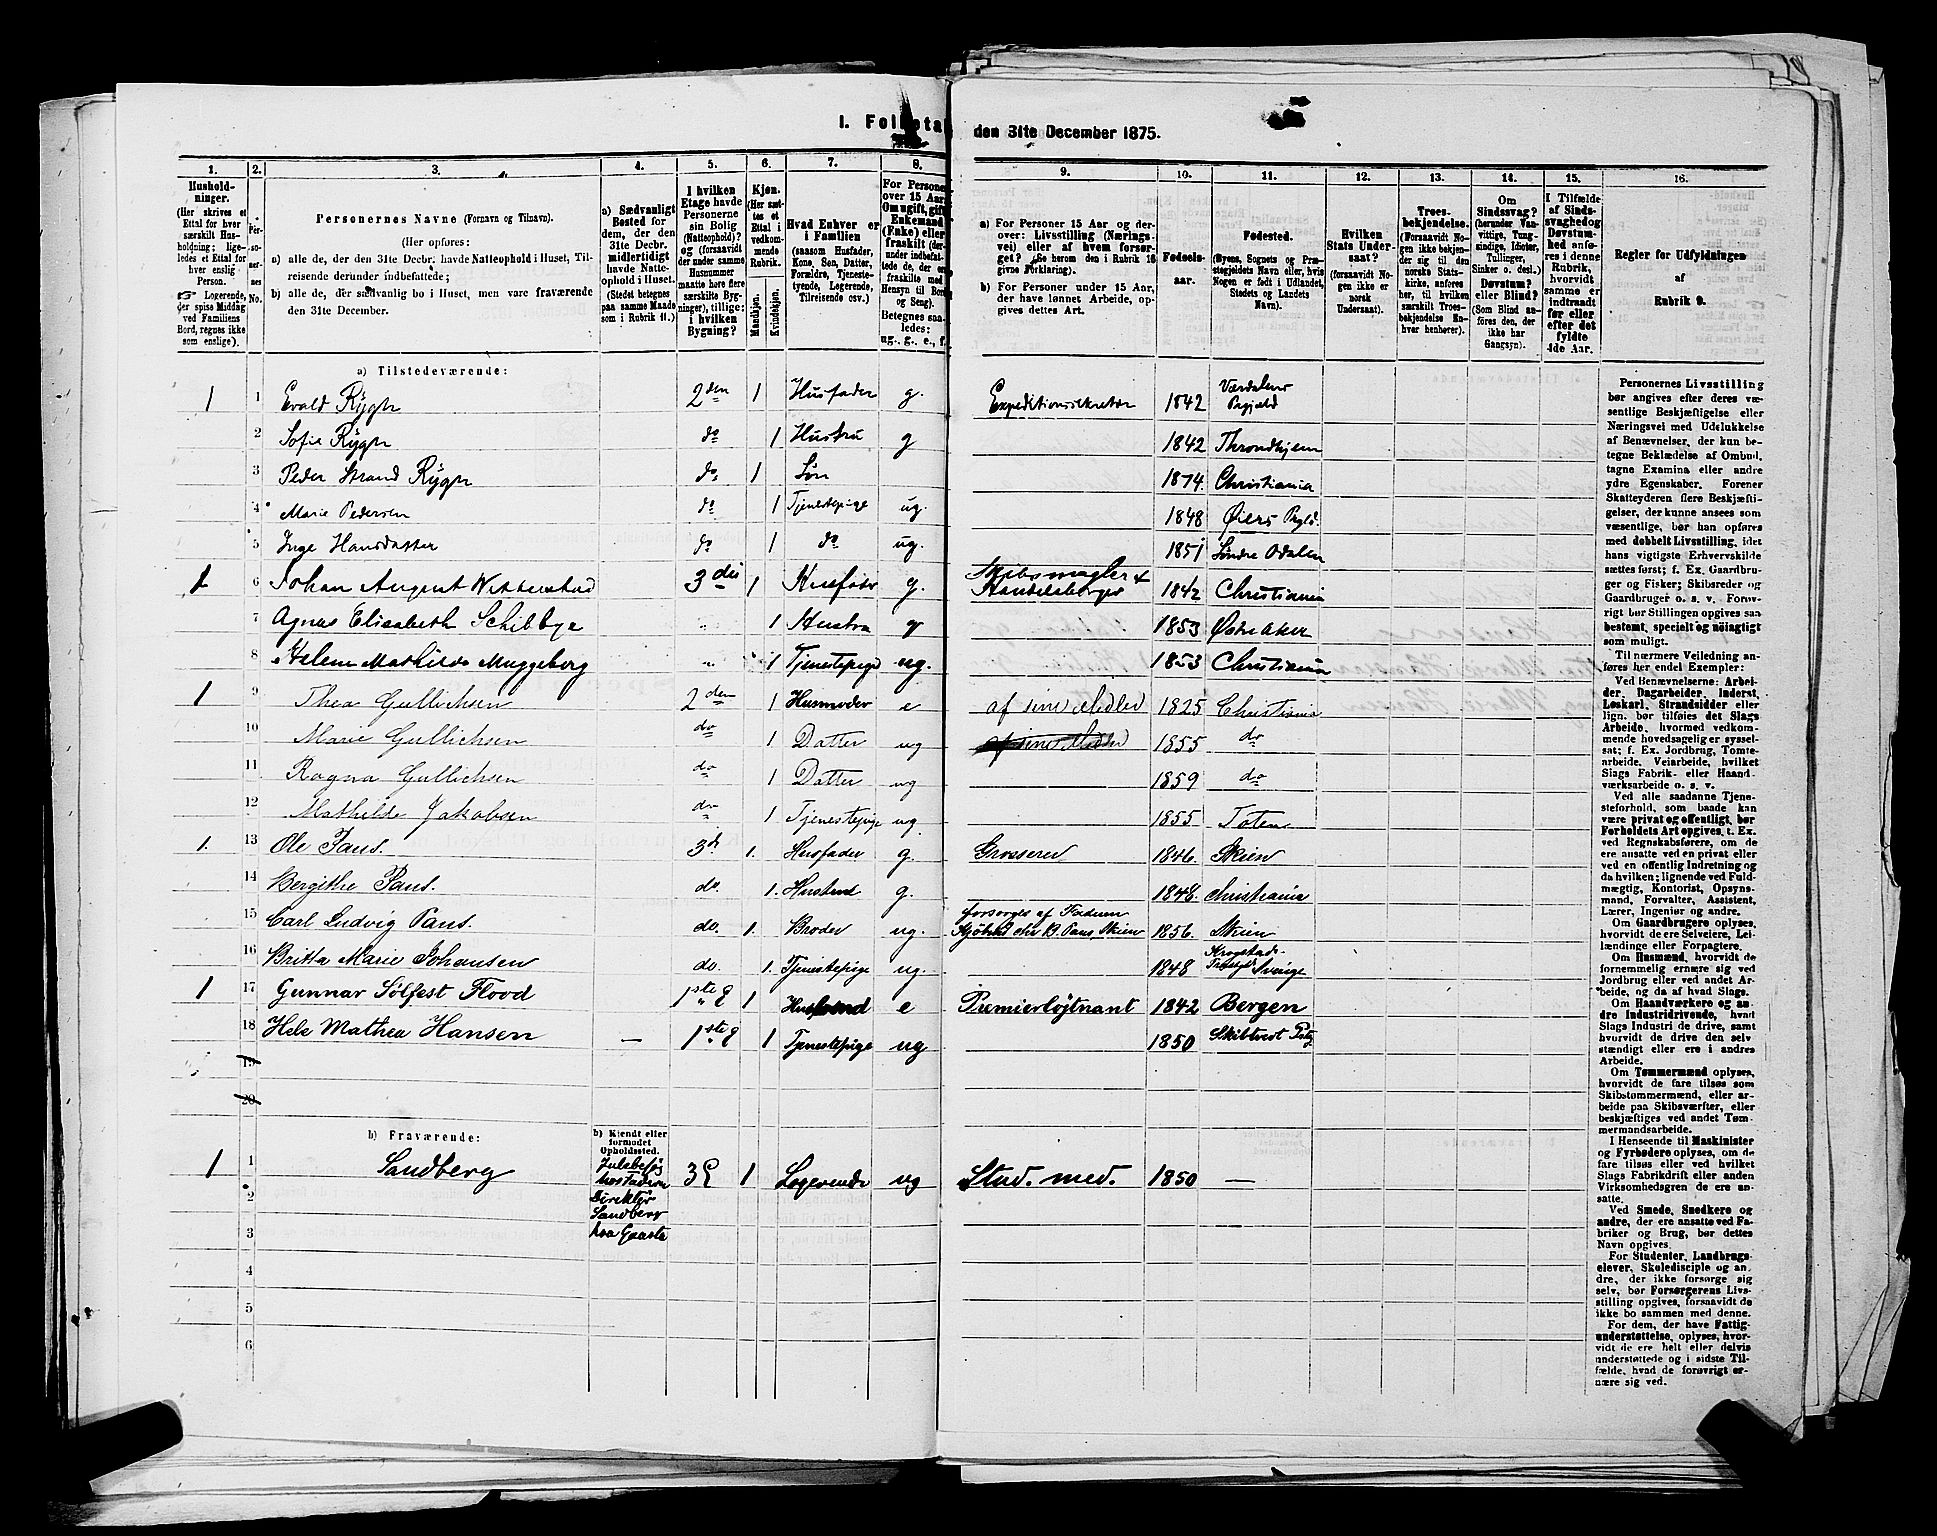 I. Folketal den 31te December 1875.
1. 2. 3. 4. 5. 6. 7. 8. 9. 10. 11. 12. 13. 14. 15. 16.
Hushold-
ninger.
(Her skrives et
Ettal for hver
særskilt Hus-
holdning; lige-
ledes et Ettal
for hver
enslig
Person.
☞ Logerende,
der spise Middag
ved Familiens
Bord, regnes ikke
som enslige).
Per-
so-
ner-
nes
No.
Personernes Navne (Fornavn og Tilnavn).
(Her opføres:
a) alle de, der den 31te Decbr. havde Natteophold i Huset, Til-
reisende derunder indbefattede;
b) alle de, der sædvanlig bo i Huset, men vare fraværende
den 31te December.
a) Sædvanligt
Bosted for
dem, der den
31te Decbr.
midlertidigt
havde Natte-
ophold i Huset.
(Stedet betegnes
paa samme Maade
som i Rubrik 11.)
I hvilken
Etage havde
Personerne
sin Bolig
(Natteophold)?
og (forsaavidt
der under samme
Husnummer
maatte høre flere
særskilte Byg-
ninger), tillige:
i hvilken
Bygning?
Kjøn.
(Her sæt-
tes et
Ettal i
vedkom-
mende
Rubrik.
Mandkjøn.
Kvindekjøn.
Hvad Enhver er
i Familien
(saasom Husfader,
Kone, Søn, Datter,
Forældre, Tjeneste-
tyende, Logerende,
Tilreisende osv.)
For Personer
over 15 Aar:
Om ugift, gift,
Enkemand
(Enke) eller
fraskilt (der-
under indbefat-
tede de, der ere
fraskilte med
Hensyn til Bord
og Seng).
Betegnes saa-
ledes:
ug., g., e., f.
a) For Personer 15 Aar og der-
over: Livsstilling (Nærings-
vei) eller af hvem forsør-
get? (Se herom den i Rubrik 16
givne Forklaring).
b) For Personer under 15 Aar,
der have lønnet Arbeide, op-
gives dettes Art.
Fødsels-
aar.
Fødested.
(Byens, Sognets og Præ-
stegjeldets Navn eller, hvis
Nogen er født i Udlandet,
Stedets og Landets
Navn).
Hvilken
Stats Under-
saat?
(forsaavidt No-
gen ikke er
norsk
Undersaat).
Troes-
bekjendelse.
(Forsaavidt No-
gen ikke bekjen-
der sig til den
norske Stats-
kirke, anføres
her, til hvilken
særskilt Troes-
bekjendelse En-
hver henhører).
Om
Sindssvag?
(herunder Van-
vittige, Tung-
sindige, Idioter,
Sinker o. desl.)
Døvstum?
eller Blind?
(Som Blind an-
føres den, der
ikke har
Gangsyn).
I Tilfælde
af Sinds-
svaghed og
Døvstum-
hed anfø-
res i denne
Rubrik,
hvorvidt
samme er
indtraadt
før eller
efter det
fyldte
4de Aar.
Regler for Udfyldningen
af
Rubrik 9.
a) Tilstedeværende:
1 1 Evald Rygh 2den 1 Husfader g. Expeditionssekretær 1842 Værdalens Prgjeld
2 Sofie Rygh do 1 Hustru g 1842 Throndhjem
3 Peder Strand Rygh do 1 Søn 1874. Christiania
4 Marie Pedersen do 1 Tjenestepige ug. 1848 Øiers Prgld.
5 Inge Hansdatter do 1 do ug. 1851 Søndre Odalen
1 6 Johan August 3die 1 Husfader g. Skibsmægler + Handelsborger 1842 Christiania
7 Agnes Elisabeth Schibbye " 1 Hustru g 1853 Østre Aker
8 Helene Mathilde Muggeborg " 1 Tjenestepige ug. 1853 Christiania
1 9 Thea Gullichsen 2den 1 Husmoder e af sine Midler 1825 Christiania
10 Marie Gullichsen do 1 Datter ug af sine Midler 1855 do
11 Ragna Gullichsen do 1 Datter ug 1859 do
12 Mathilde Jakobsen do 1 Tjenestepige ug 1855 Toten
1. 13 Ole Paus. 3d 1. Husfader g. Grosserer 1846. Skien
14 Bergithe Paus. do. 1. Hustrue g. 1848. Christiania
15 Carl Ludvig Paus. do. 1. Broder ug. forsørges af Faderen Kjøbmd. B. Paus, Skien 1856. Skien
16 Britta Marie Johansen do. 1. Tjenestepige ug. 1848 Krogstad Sverige
1 17 Gunnar Sølfest Flood 1ste E 1 Husfader e Premierløjtnant 1842 Bergen
18 Hele Mathea Hansen — 1ste E 1 Tjenestepige ug 1850 Skibtvedt Prtg
19
20
b) Fraværende:
b) Kjendt eller
formodet
Opholdssted.
1 1 Sandberg Julebesøg hos fadren Direktør Sandberg paa Gausta 3E 1 Logerende ug Stud. med. 1850 —
2
3
4
5
6
Personernes Livsstilling
bør angives efter deres væ-
sentlige Beskjæftigelse eller
Næringsvei med Udelukkelse
af Benævnelser, der kun be-
tegne Beklædelse af Ombud,
tagne Examina eller andre
ydre Egenskaber. Forener
Skatteyderen flere Beskjæfti-
gelser, der kunne ansees som
væsentlige, bør han opføres
med dobbelt Livsstilling, idet
hans vigtigste Erhvervskilde
sættes først; f. Ex. Gaardbru-
ger og Fisker; Skibsreder og
Gaardbruger o. s. v. Forøv-
rigt bør Stillingen opgives saa
bestemt, specielt og nøiagtigt
som muligt.
Til nærmere Veiledning an-
føres her endel Exempler:
Ved Benævnelserne: Arbei-
der, Dagarbeider, Inderst,
Løskarl, Strandsidder eller
lign. bør tilføies det Slags
Arbeide, hvormed vedkom-
mende hovedsagelig er syssel-
sat; f. Ex. Jordbrug, Tomte-
arbeide, Veiarbeide, hvilket
Slags Fabrik- eller Haand-
værksarbeide o. s. v.
Ved alle saadanne Tjene-
steforhold, som baade kan
være privat og offentligt, bør
Forholdets Art opgives, t. Ex.
ved Regnskabsførere, om de
ere ansatte ved en privat eller
ved en offentlig Indretning og
da hvilken; lignende ved Fuld-
mægtig, Kontorist, Opsyns-
mand, Forvalter, Assistent,
Lærer, Ingeniør og andre.
Om Gaardbrugere oplyses,
hvorvidt de ere Selveiere, Lei-
lændinge eller Forpagtere.
Om Husmænd, hvorvidt de
fornemmelig ernære sig ved
Jordbrug eller ved andet Ar-
beide, og da af hvad Slags.
Om Haandværkere og an-
dre Industridrivende, hvad
Slags Industri de drive, samt
hvorvidt de drive den selv-
stændigt eller ere i andres
Arbeide.
Om Tømmermænd oplyses,
hvorvidt de fare tilsøs som
Skibstømmermænd, eller ar-
beide paa Skibsværfter, eller
beskjæftiges ved andet Tøm-
mermandsarbeide.
I Henseende til Maskinister
og Fyrbødere oplyses, om de
fare tilsøs eller ved hvilket
Slags Fabrikdrift eller anden
Virksomhedsgren de ere an-
satte.
Ved Smede, Snedkere og
andre, der ere ansatte ved Fa-
briker og Brug, bør dettes
Navn opgives.
For Studenter, Landbrugs-
elever, Skoledisciple og an-
dre, der ikke forsørge sig
selv, bør Forsørgerens Livs-
stilling opgives, forsaavidt de
ikke bo sammen med denne.
For dem, der have Fattig-
understøttelse, oplyses, hvor-
vidt de ere helt eller delvis
understøttede og i sidste Til-
fælde, hvad de forøvrigt er-
nære sig ved.